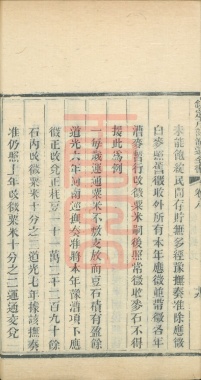 泰能飽緣民間存貯無多經豫撫奏准除應徵
白麥照舊收徵外所有本年應徵並帶徵各年
漕麥暫行收徵粟米嗣後照常徵收麥石不得
援此為例
一每歲運通粟米不敷支放而豆石積有盈餘
道光六年河南巡撫奏准將本年豫漕項下應
徵正改兌正耗豆十一萬二千二百九十餘
石內改徵粟米十分之三道光七年據該撫奏
准仍照上年改徵粟米十分之二運通交兌